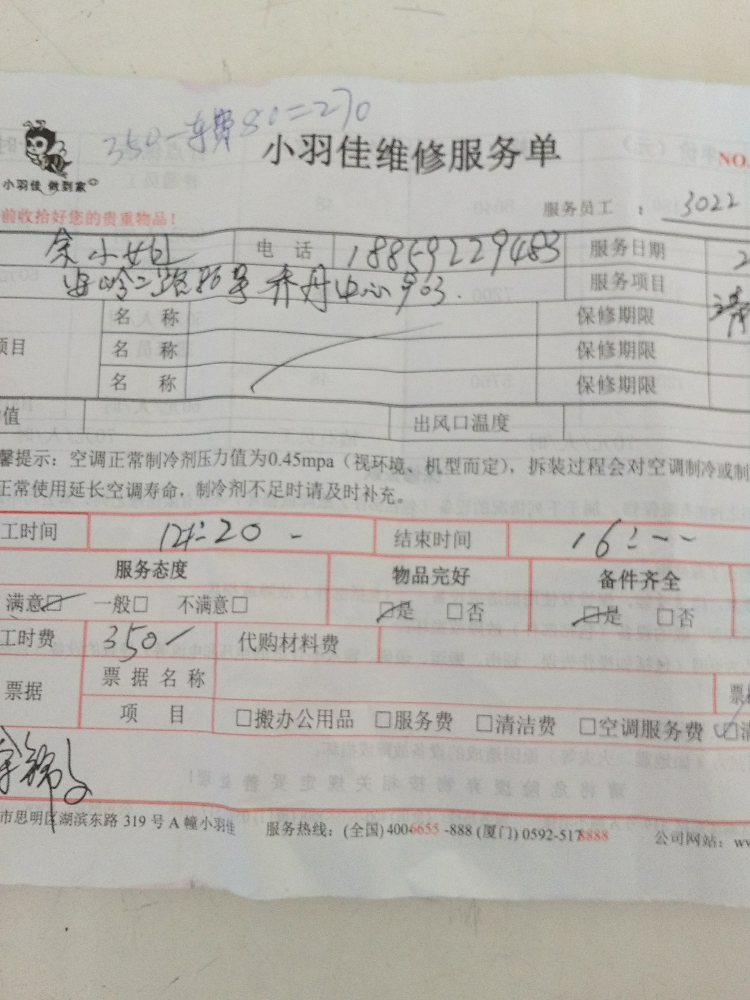 350-车费80=270
小羽佳维修服务单
NO.
小羽佳 做到家
前收拾好您的贵重物品!
服务员工 : 3022
余小姐 电 话 18859229483 服务日期 2
岭二路 号 乔丹中心903. 服务项目 清
名 称 保修期限
项目 名 称 保修期限
名 称 保修期限
值 出风口温度
馨提示:空调正常制冷剂压力值为0.45mpa(视环境、机型而定),拆装过程会对空调制冷或制
正常使用延长空调寿命,制冷剂不足时请及时补充。
工时间 12:20 - 结束时间 16:--
服务态度 物品完好 备件齐全
满意☑ 一般□ 不满意□ ☑是 □否 ☑是 □否
工时费 350/ 代购材料费
票据 票 据 名 称 票
项 目 □搬办公用品 □服务费 □清洁费 □空调服务费 ☑清
市思明区湖滨东路 319 号 A 幢小羽佳 服务热线:(全国) 4006655 -888 (厦门) 0592-5178888 公司网站:ww